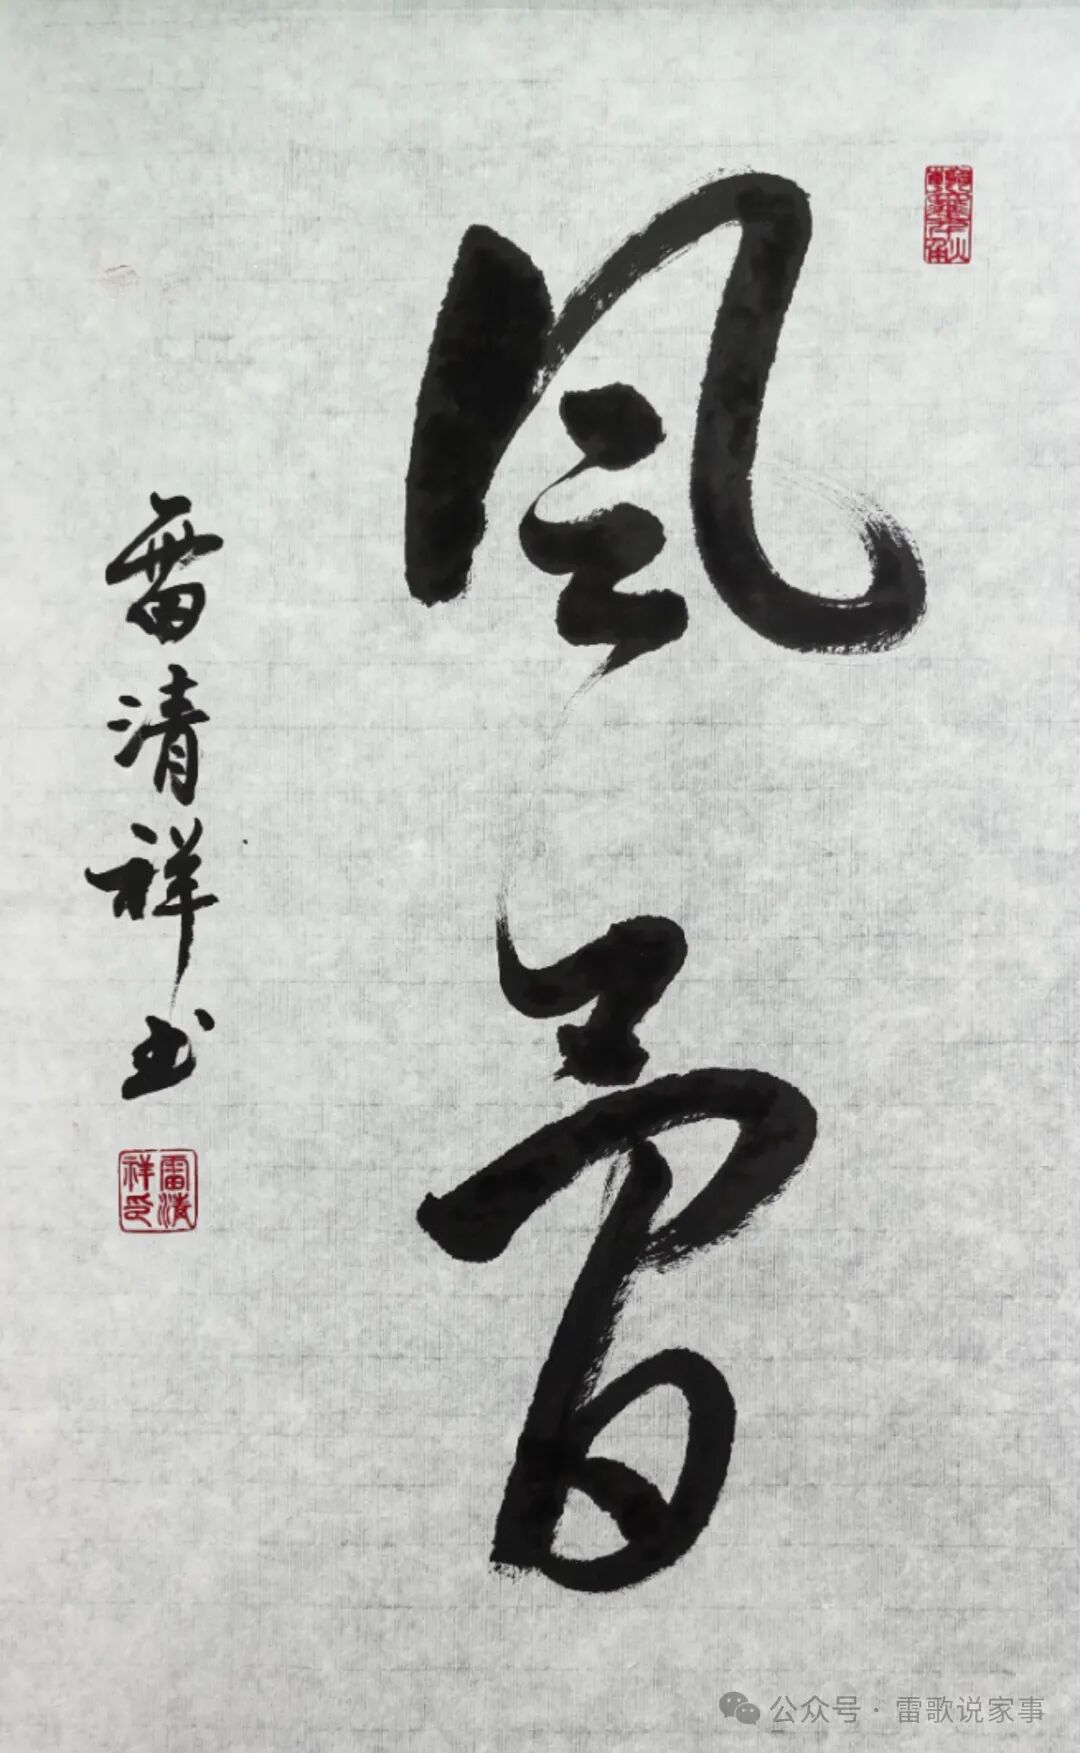 风骨
雷清祥书
雷清祥印
公众号·雷歌说家事